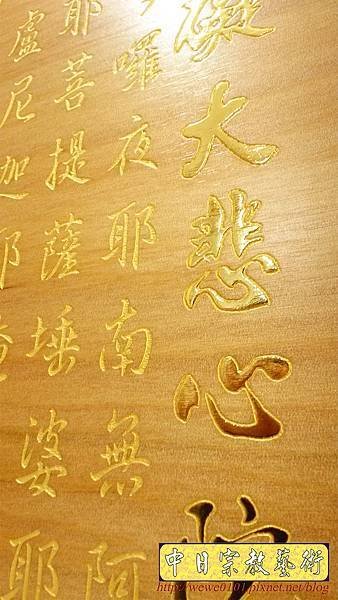 礙大悲心陀
囉夜耶南無阿
耶菩提薩埵婆耶
盧尼迦耶
中日宗教藝術
http://wewe0101.pixnet.net/blog